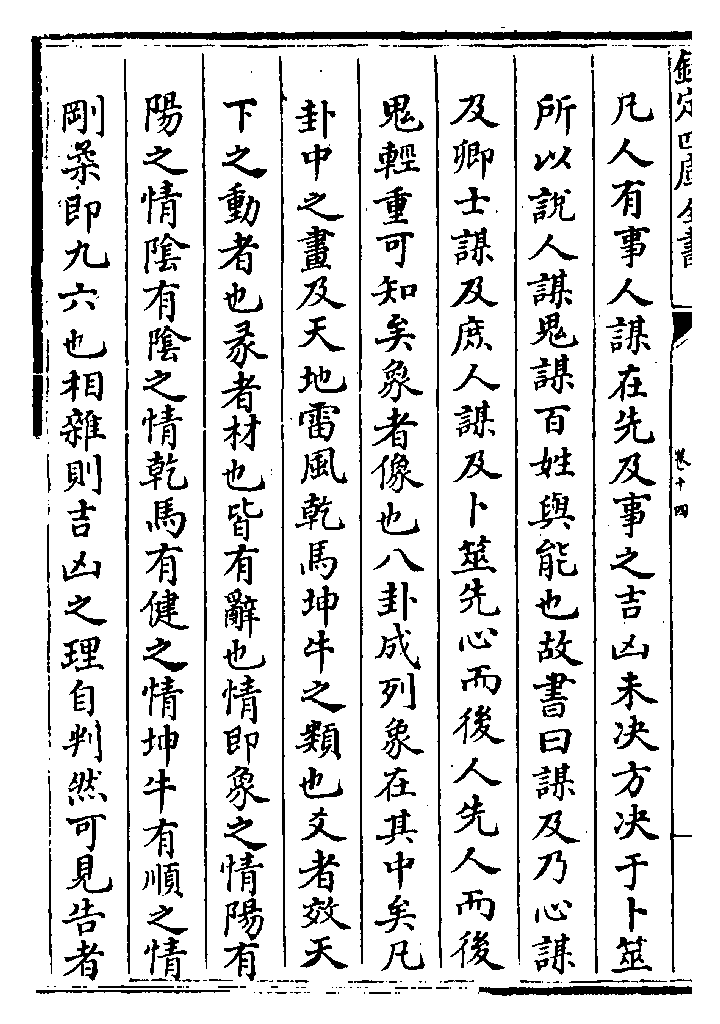 欽定四庫全書
卷十四
凡人有事人謀在先及事之吉凶未決方決于卜筮
所以說人謀鬼謀百姓與能也故書曰謀及乃心謀
及卿士謀及庶人謀及卜筮先心而後人先人而後
鬼輕重可知矣象者像也八卦成列象在其中矣凡
卦中之畫及天地雷風乾馬坤牛之類也爻者效天
下之動者也彖者材也皆有辭也情即象之情陽有
陽之情陰有陰之情乾馬有健之情坤牛有順之情
剛柔即九六也相雜則吉凶之理自判然可見告者